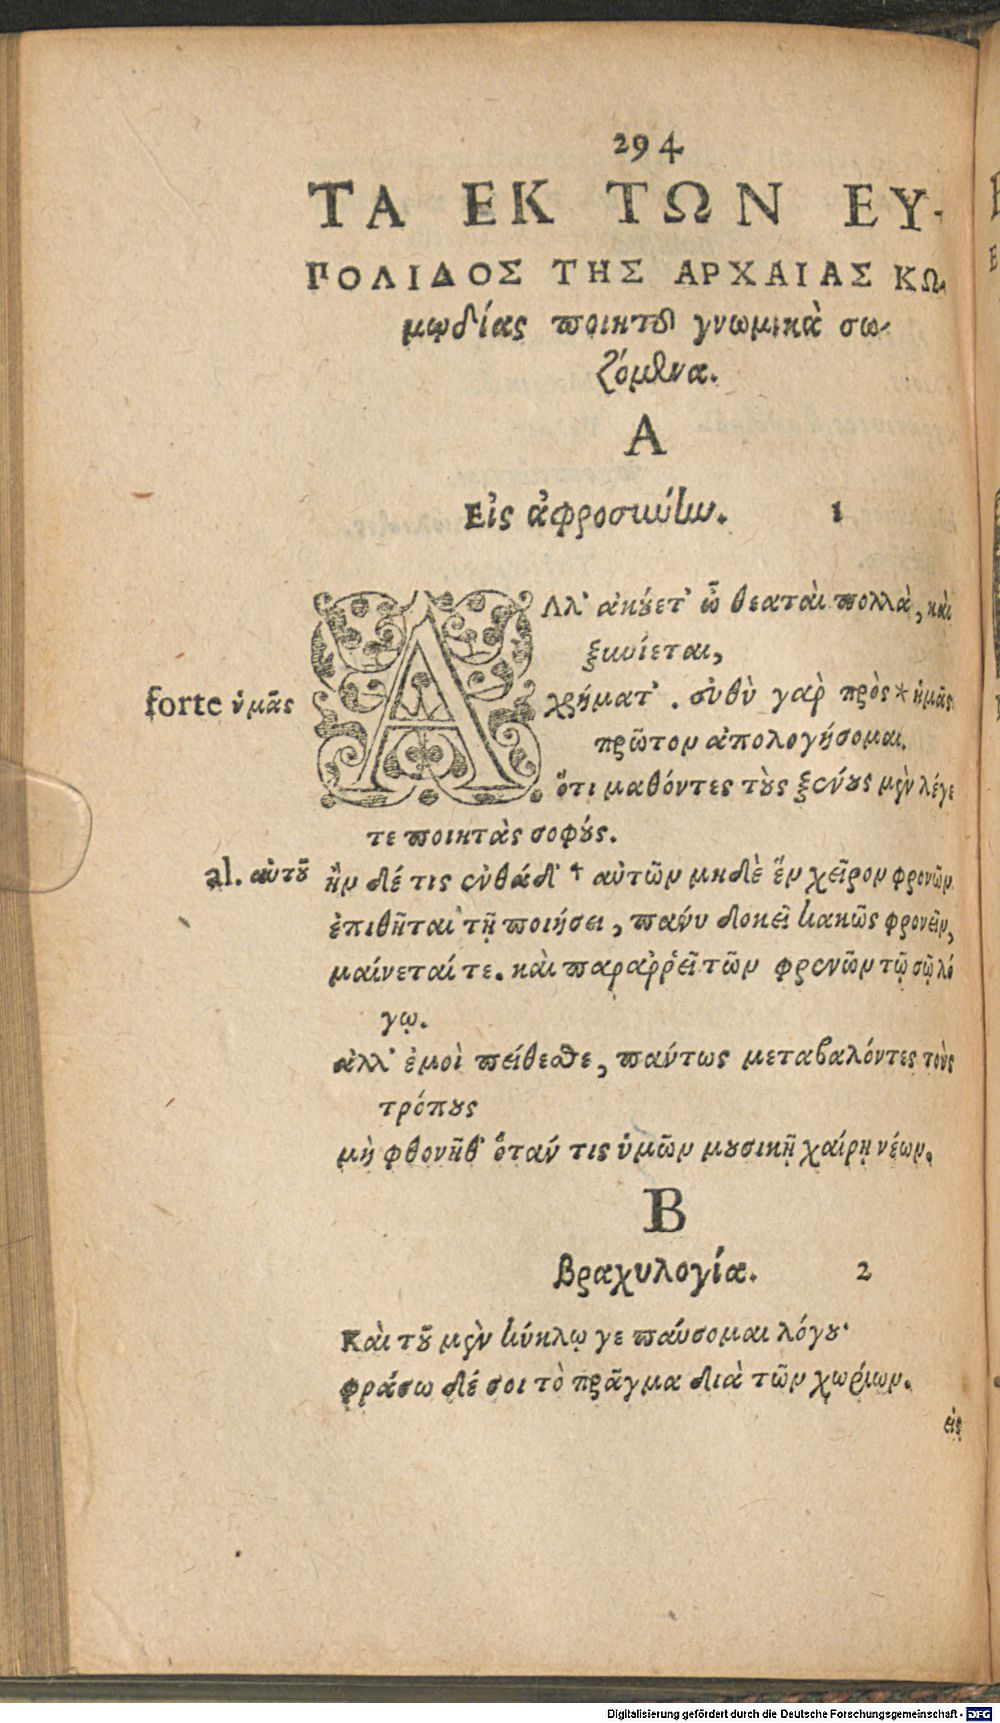 294
ΤΑ ΕΚ ΤΩΝ ΕΥ-
ΠΟΛΙΔΟΣ ΤΗΣ ΑΡΧΑΙΑΣ ΚΩ-
μῳδίας ποιητοῦ γνωμικὰ σω-
ζόμενα.
Α
Εἰς ἀφροσύνην. 1
ΑΛλ' ἀκούετ' ὦ θεαταὶ πολλὰ, καὶ
ξυνίεται,
forte ὑμᾶς χρήματ'. εὐθὺ γὰρ πρὸς * ἡμᾶς
πρῶτον ἀπολογήσομαι.
ὅτι μαθόντες τοὺς ξένους μὲν λέγε
τε ποιητὰς σοφούς.
al. αὐτοῦ ἢν δέ τις ἐνθάδ' † αὐτῶν μηδὲ ἓν χεῖρον φρονῶν
ἐπιθῆται τῇ ποιήσει, πάνυ δοκεῖ κακῶς φρονεῖν,
μαίνεταί τε. καὶ παραῤῥεῖ τῶν φρενῶν τῷ σῷ λό
γῳ.
ἀλλ' ἐμοὶ πείθεσθε, πάντως μεταβαλόντες τοὺς
τρόπους
μὴ φθονῆθ' ὅταν τις ὑμῶν μουσικῇ χαίρῃ νέων.
Β
βραχυλογία. 2
Καὶ τοῦ μὲν κύκλῳ γε παύσομαι λόγου·
φράσω δέ σοι τὸ πρᾶγμα διὰ τῶν χωρίων.
εἰς
Digitalisierung gefördert durch die Deutsche Forschungsgemeinschaft - DFG